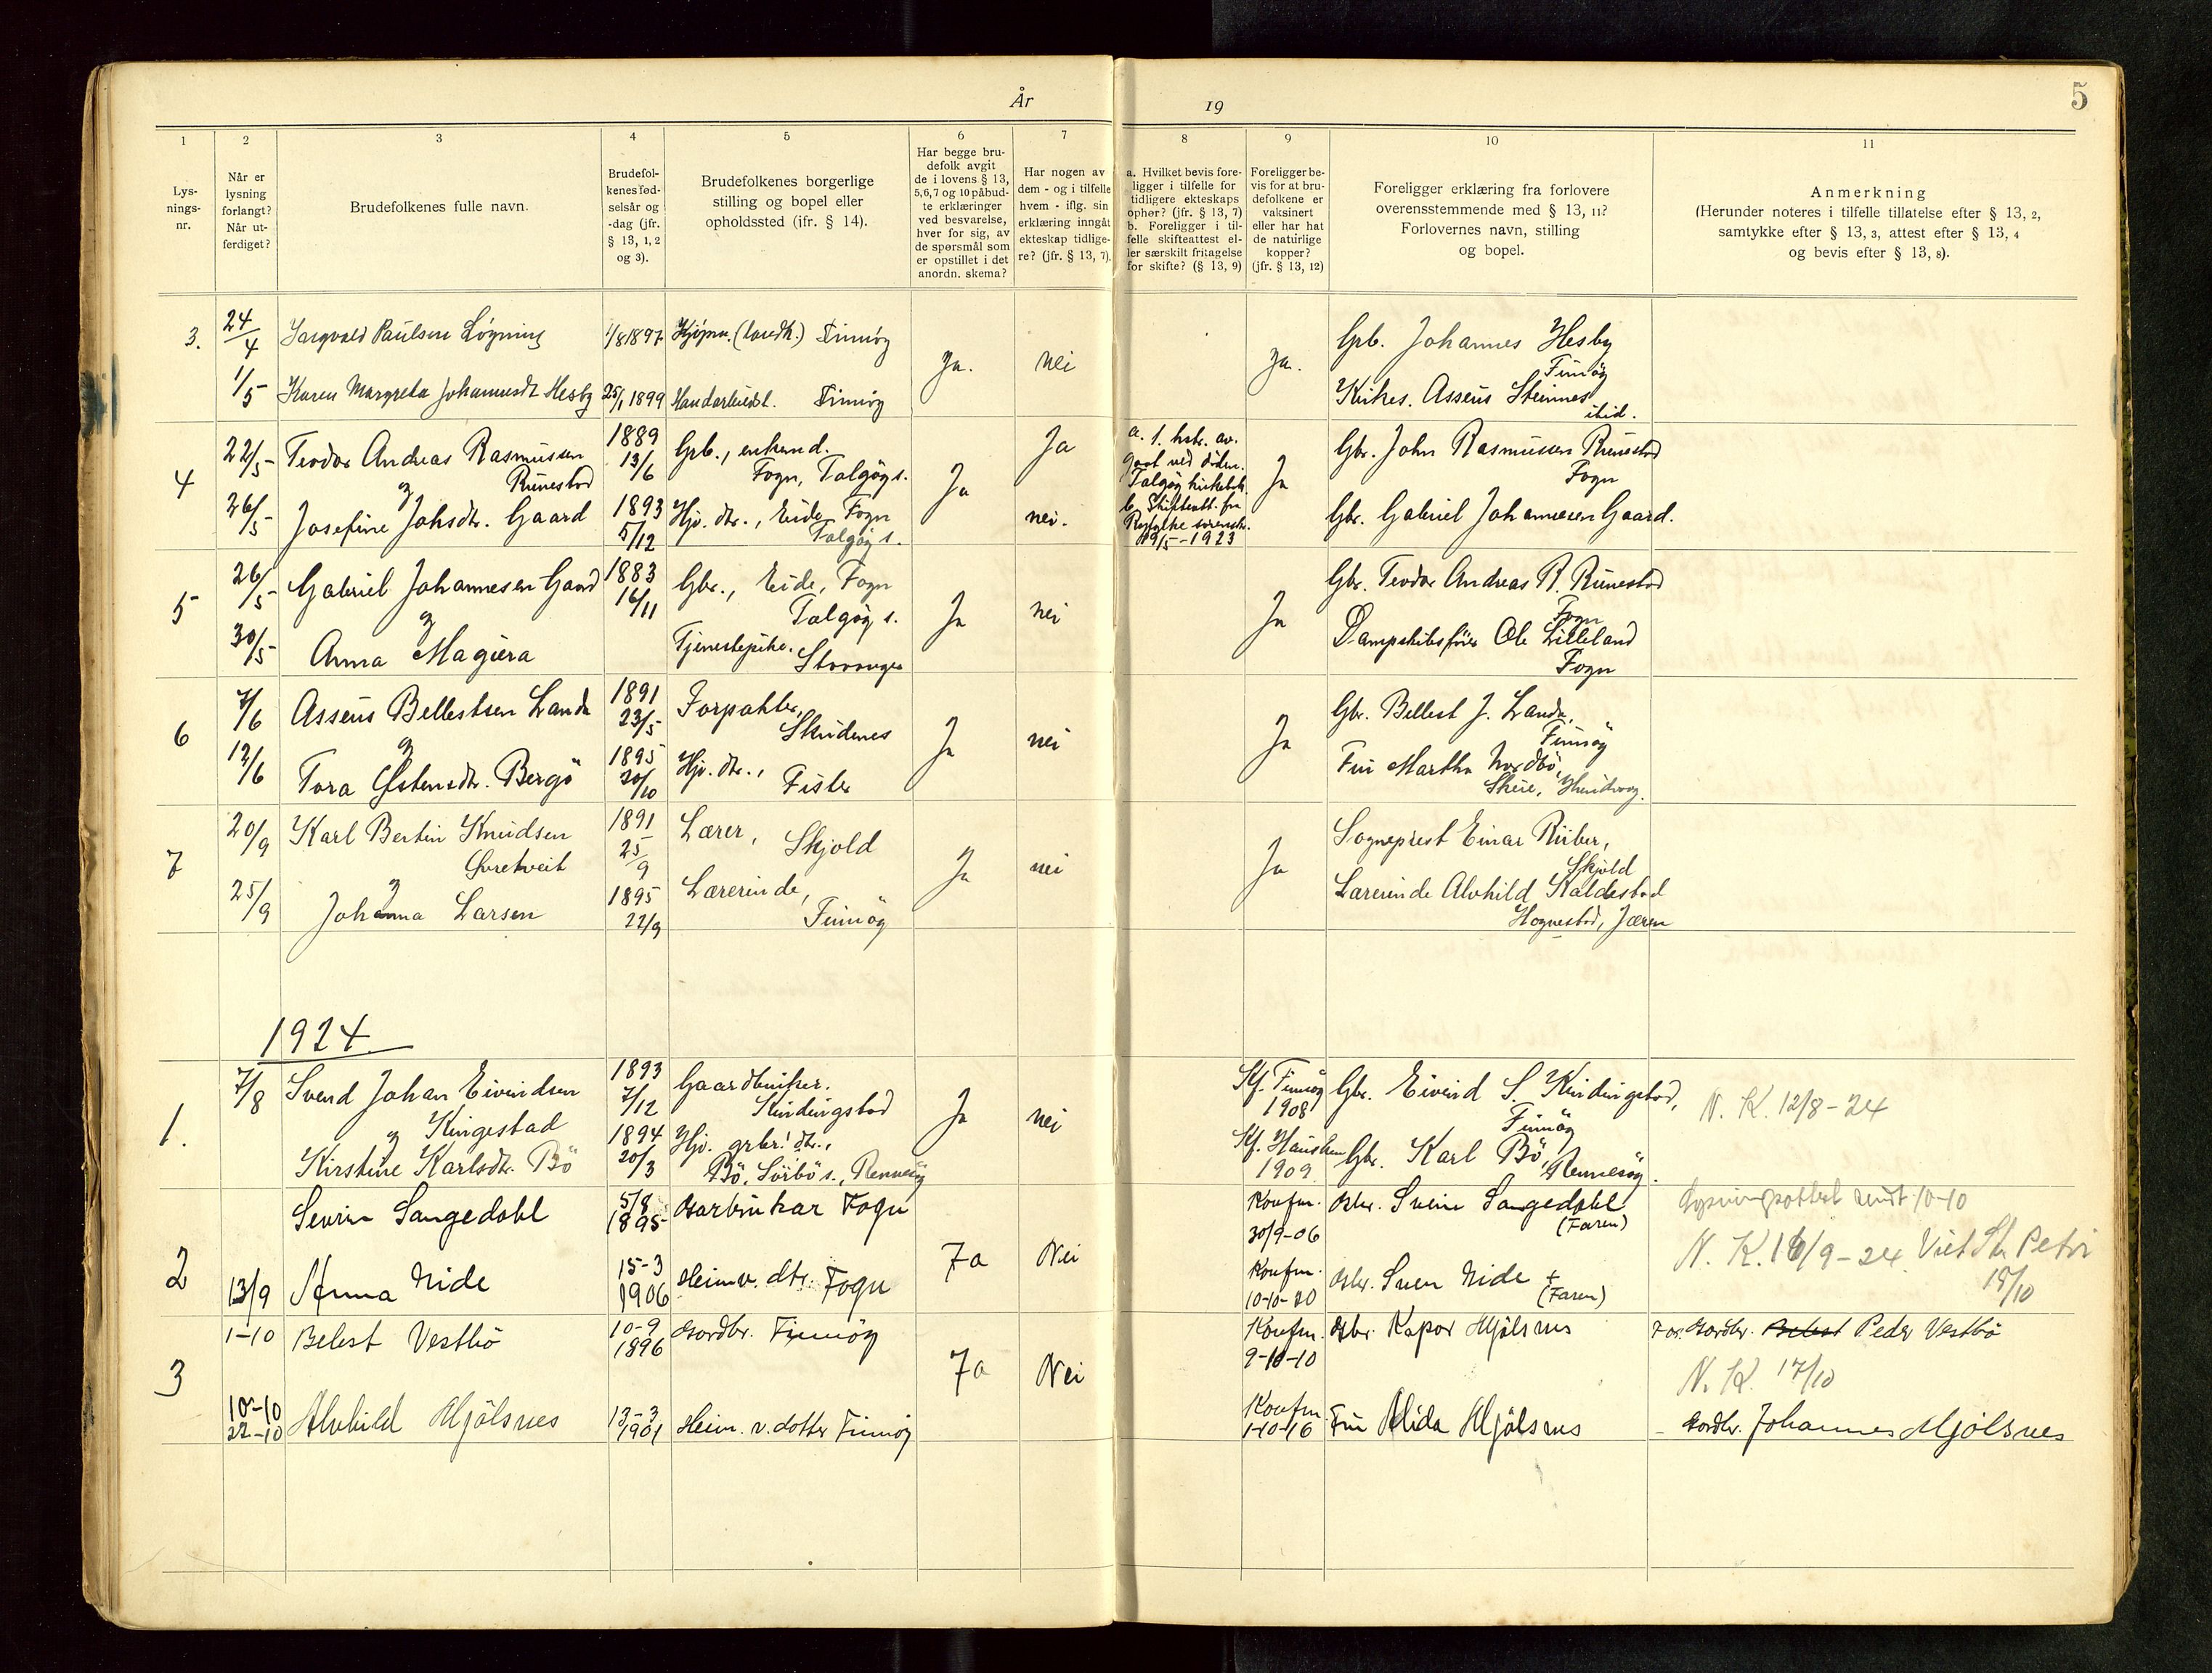 År
19
5
1
2
3
4
5
6
7
8
9
10
11
Lys-
nings-
nr.
Når er
lysning
forlangt?
Når ut-
ferdiget?
Brudefolkenes fulle navn.
Brudefol-
kenes fød-
selsår og
-dag (jfr.
§ 13, 1, 2
og 3).
Brudefolkenes borgerlige
stilling og bopel eller
opholdssted (jfr. § 14).
Har begge bru-
defolk avgit
de i lovens § 13,
5,6,7 og 10 påbud-
te erklæringer
ved besvarelse,
hver for sig, av
de spørsmål som
er opstillet i det
anordn. skema?
Har nogen av
dem - og i tilfelle
hvem - iflg. sin
erklæring inngåt
ekteskap tidlige-
re? (jfr. § 13, 7).
a. Hvilket bevis fore-
ligger i tilfelle for
tidligere ekteskaps
ophør? (jfr. § 13, 7)
b. Foreligger i til-
felle skifteattest el-
ler særskilt fritagelse
for skifte? (§ 13, 9)
Foreligger be-
vis for at bru-
defolkene er
vaksinert
eller har hat
de naturlige
kopper?
(jfr. § 13, 12)
Foreligger erklæring fra forlovere
overensstemmende med § 13, 11?
Forlovernes navn, stilling
og bopel.
Anmerkning
(Herunder noteres i tilfelle tillatelse efter § 13, 2,
samtykke efter § 13, 3, attest efter § 13, 4
og bevis efter § 13, 8).
3. 24/4 Paulsen Løgning 1/8 1897 Kjøpm. (landh.) Finnøy
Ja. nei Ja.
Grb. Johannes Hesby
Finnøy
1/5 Karen Margreta Johannesdt. Hesby 25/1 1899 Finnøy
Asseus Steinnes
ibid.
4 22/5 Teodor Andreas Rasmussen
Runestad
1889
13/6
Grb., enkem.
Fogn, Talgøy s.
Ja
Ja
a. 1. hstr. av.
Talgøy
Ja
Gbr. John Rasmussen Runestad
Fogn
og
26/5 Josefine Johsdtr. Gaard
1893
5/12
Hjv. dtr., Eide, Fogn
Talgøy s.
nei.
b. Skifteatt. fra
Ryfylke
19/5-1923
Gbr. Gabriel Johannesen Gaard.
5 26/5 Gabriel Johannesen Gaard
1883
16/11
Gbr., Eide, Fogn
Talgøy s.
Ja nei Ja
Gbr. Teodor Andreas R. Runestad
Fogn
og
30/5 Anna Magiera
Tjenestepike.
Stavanger
Dampskibsfører Ole Lilleland
Fogn
6 7/6 Asseus Bellestsen Landa
1891
23/5
Forpakter,
Skudenes
Ja nei Ja
Gbr. Bellest J. Landa,
Finnøy
og
12/6 Tora Østensdtr. Bergø
1895
20/10
Hjv. dtr.,
Fister
Fru Martha Nordbø,
Skeie, Hundvaag.
7 20/9 Karl Bertin Knudsen
Øvretveit
1891
25/9
Lærer,
Skjold
Ja nei Ja
Sogneprest Einar Riiber,
Skjold
og
25/9 Johanna Larsen
1895
22/9
Lærerinde,
Finnøy
Lærerinde Alvhild Kaldestad
Hognestad, Jæren
1924
1. 7/8 Svend Johan Eivindsen
Kingestad
1893
7/12
Gaardbruker.
Kindingstad
Ja nei
Kf. Finnøy
1908
Gbr. Eivind S. Kindingstad,
Finnøy
N. K. 12/8-24
og
Kirstine Karlsdtr. Bø
1894
20/3
Hjv. grbr. dtr.,
Bø, Sørbø s., Rennesøy
Kf. Hausken
1909
Gbr. Karl Bø, Rennesøy.
2 Sevrin Sangedahl
5/8
1895
Garbrukar Fogn
7a Nei
Konfm.
30/9-06
Svein Sangedahl
(Faren)
Lysningsattest sendt 10-10
N. K. 16/9-24. Viet St. Petri
18/10
13/9 Anna Eide
15-3
1906
Heimv. dtr. Fogn
Konfm.
10-10-20
Sven Eide +
(Faren)
3 1-10 Belest Vestbø
10-9
1896
Gardbr. Finnøy
7a Nei
Konfm.
9-10-10
Gbr. Kapor Mjølsnes
Far. Gardbr. Belest Peder Vestbø
N. K. 17/10
10-10
22-10
Alvhild Mjølsnes
13-3
1901
Heim. v. dotter Finnøy
Konfm.
1-10-16
Fru Alida Mjølsnes
- Gardbr. Johannes Mjølsnes